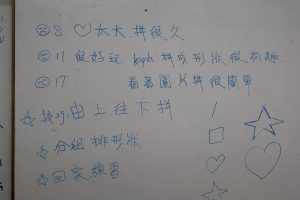 ☹ 8. ♡太大拼很久
☺ 11. 很好玩 kapla 拼成形狀很有趣
☺ 17. 看著圖片拼很簡單
☆ 技巧:由上往下拼
☆ 分組排形狀
☆ 回家練習